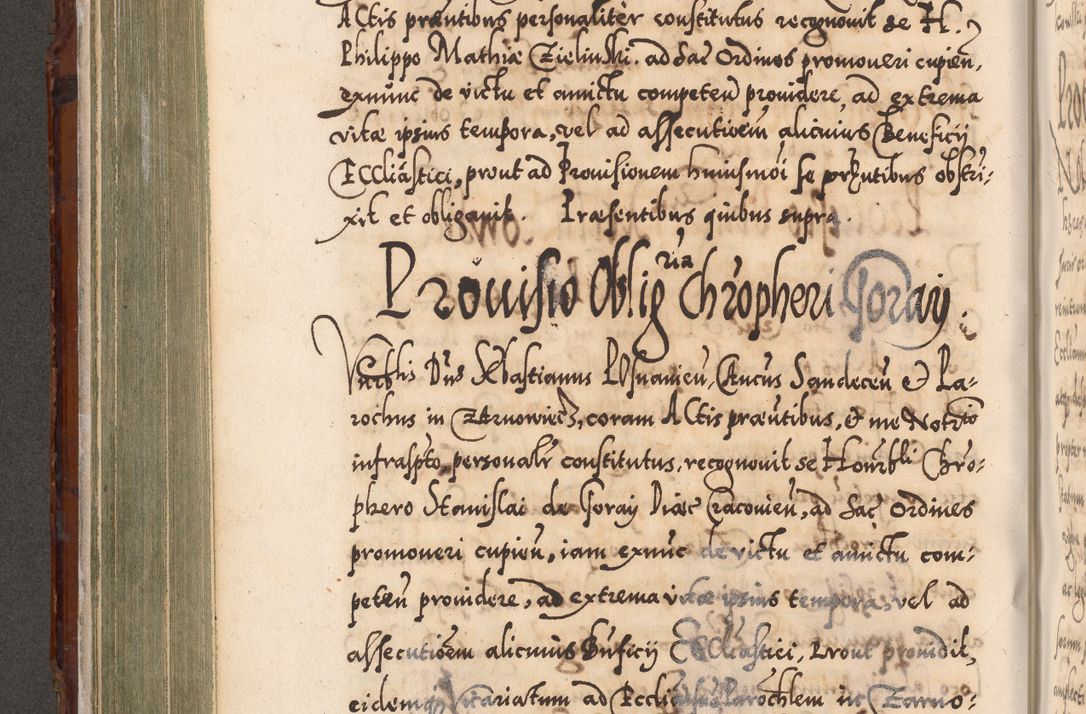 ACtis præntibus personaliter constitutus recognovit se H.
Philippo Mathiæ Zielinski. ad Sac Ordines promoveri cupien,
exnunc de victu et amictu competen providere, ad extrema
vitæ ipsius tempora, vel ad assecutioem alicuius Beneficÿ
ECCliastici, prout ad Provisionem huiusmoi se prntibus obstri-
xit et obligavit. Præsentibus quibus supra.
Provisio Oblig ria Chropheri Goraÿ.
Vnrblis Dns Sebastianus POsnanien, CAncus Sandecen & Pa-
rochus in CZArnowiecz, coram ACtis præntibus, & me Notrio
infraspto, personalr constitutus, recognovit se Honrbli Chro-
phero Stanislai de Goraÿ Diæc Cracovien, ad Sac Ordines
promoveri cupien, iam exnuc de victu et amictu com-
peten providere, ad extrema vitæ ipsius tempora, vel ad
assecutioem alicuius Bnficÿ ECCliastici, Prout providit,
eidemq Vicariatum ad Eccliam Parochlem in Czarno-